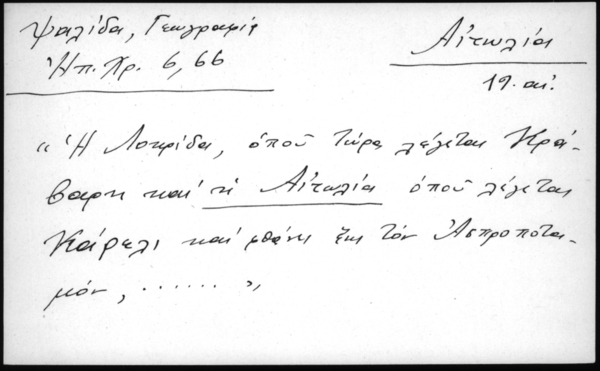 Ψαλίδα, Γεωγραφία
Ἠπ. Χρ. 6, 66
Αἰτωλία
19. αἰ.
“Ἡ Λοκρίδα, ὁποῦ τώρα λέγεται Κρά-
βαρη καί ἡ Αἰτωλία ὁποῦ λέγεται
Κάρελι καί φθάνει ἕως τόν Ἀσπροπότα-
μόν, ...... ”